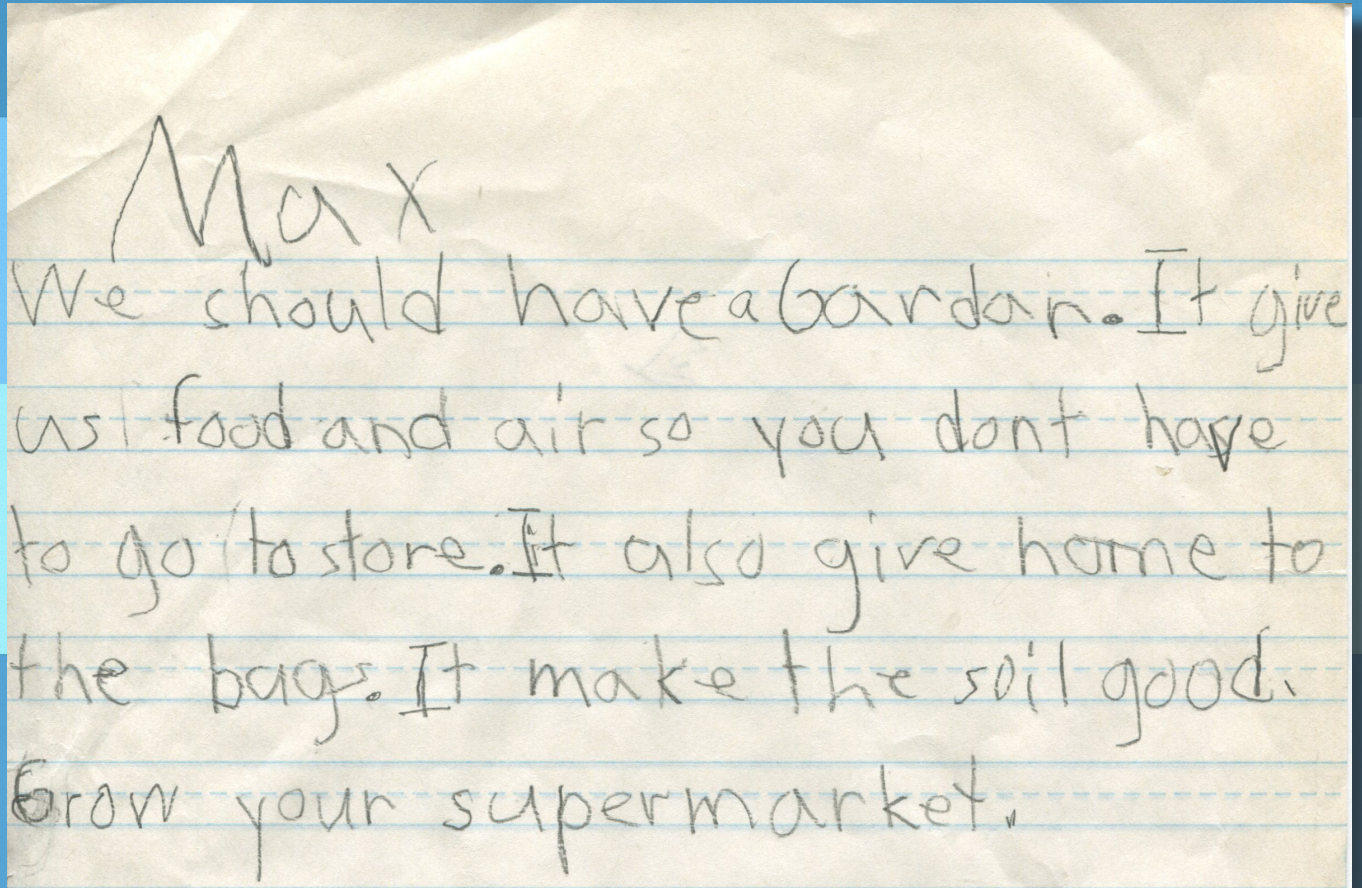 Max
We should have a Gardan. It give
us food and air so you dont have
to go to store. It also give home to
the bugs. It make the soil good.
Grow your supermarket.